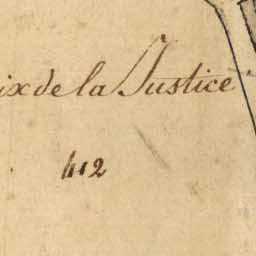 ix de la Justice
412